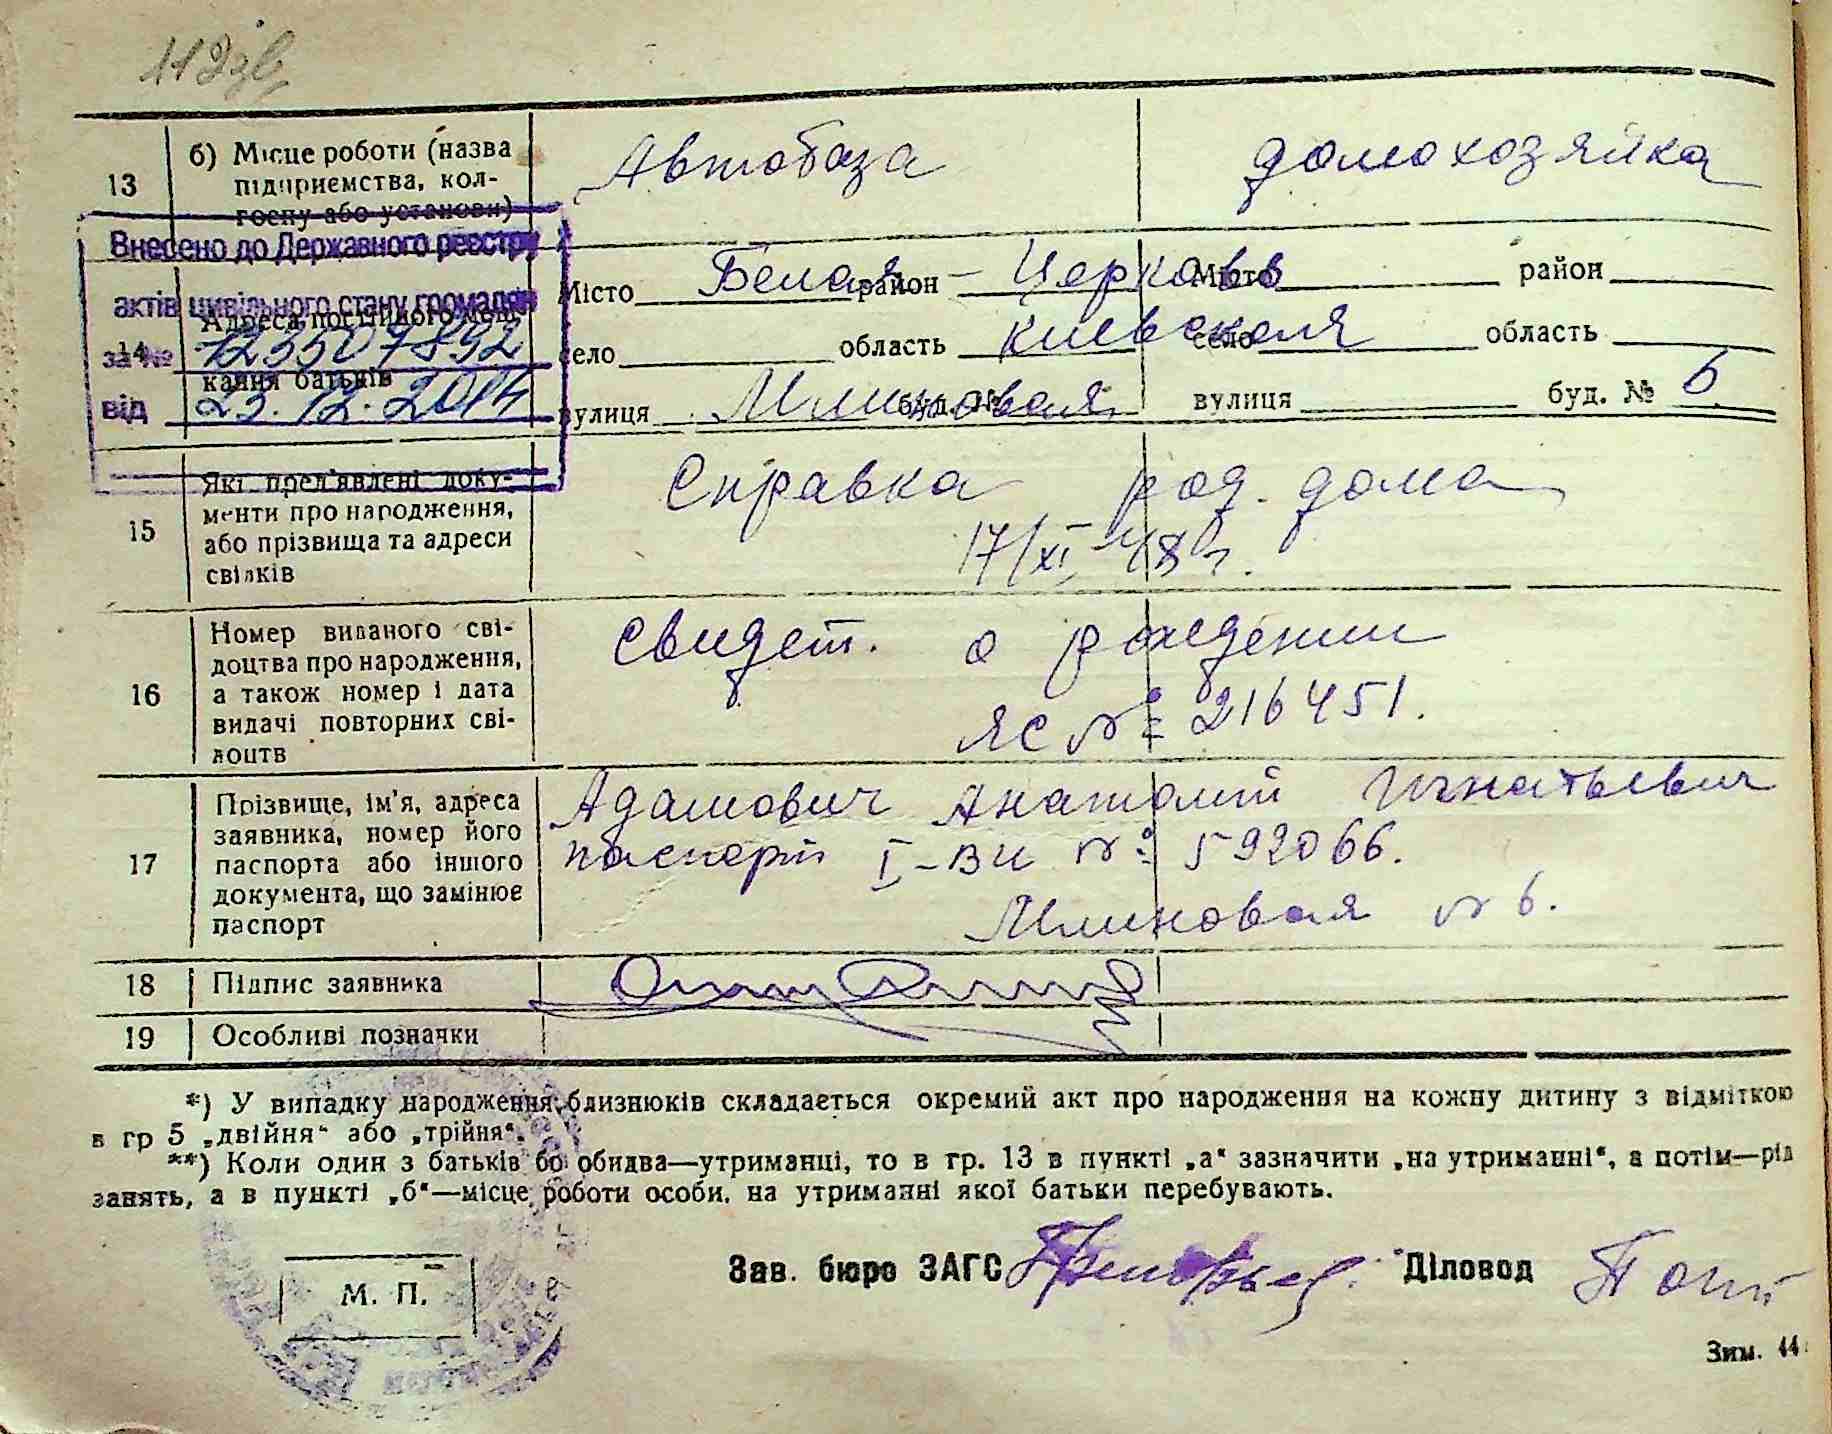 112зв
13
б) Місце роботи (назва
підприємства, кол-
госпу або установи)
Автобаза
домохозяйка
Внесено до Державного реєстру
актів цивільного стану громадян
за №
від 23.12.2014
14
Адреса постійного меш-
кання батьків
Місто Белая - район Церковь
Місто район
село область Киевская
село область
вулиця Млиновая буд. №
вулиця буд. № 6
15
Які пред'явлені доку-
менти про народження,
або прізвища та адреси
свідків
Справка род. дома
17/XI-48 г.
16
Номер виданого сві-
доцтва про народження,
а також номер і дата
видачі повторних сві-
доцтв
Свидет. о рождении
ЯС № 216451.
17
Прізвище, ім'я, адреса
заявника, номер його
паспорта або іншого
документа, що замінює
паспорт
Адамович Анатолий Игнатьевич
паспорт I-ВИ № 592066.
Млиновая № 6.
18
Підпис заявника
19
Особливі позначки
*) У випадку народження близнюків складається окремий акт про народження на кожну дитину з відміткою
в гр 5 „двійня“ або „трійня“.
**) Коли один з батьків бо обидва—утриманці, то в гр. 13 в пункті „а“ зазначити „на утриманні“, а потім—рід
занять, а в пункті „б“—місце роботи особи, на утриманні якої батьки перебувають.
М. П.
Зав. бюро ЗАГС
Діловод
Зим. 44